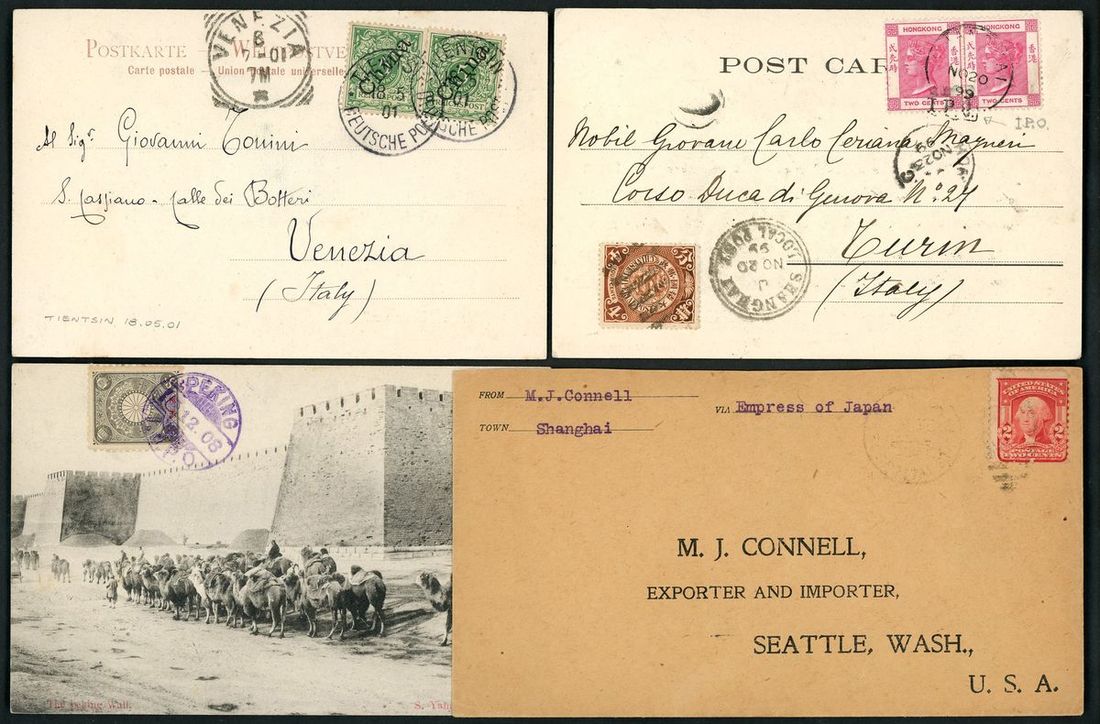 POSTKARTE — WELTPOSTVE
Carte postale — Union postale universelle
VENEZIA
China
China
TIENTSIN
18.5
01
DEUTSCHE POST
Al Sigr Giovanni Tonini
S. Cassiano - Calle dei Botteri
Venezia
(Italy)
TIENTSIN 18.05.01
POST CAR
HONGKONG
HONGKONG
香港
香港
TWO CENTS
TWO CENTS
NO 20
99
I.P.O.
NO 23
99
Nobil Giovane Carlo Ceriana Mayneri
Corso Duca di Genova No 27
Turin
(Italy)
SHANGHAI LOCAL POST
NO 20
99
PEKING
12.08
The Peking Wall.
S. Yam
FROM M.J.Connell
TOWN Shanghai
VIA Empress of Japan
UNITED STATES
OF AMERICA
2 2
POSTAGE
TWO CENTS
M. J. CONNELL,
EXPORTER AND IMPORTER,
SEATTLE, WASH.,
U. S. A.